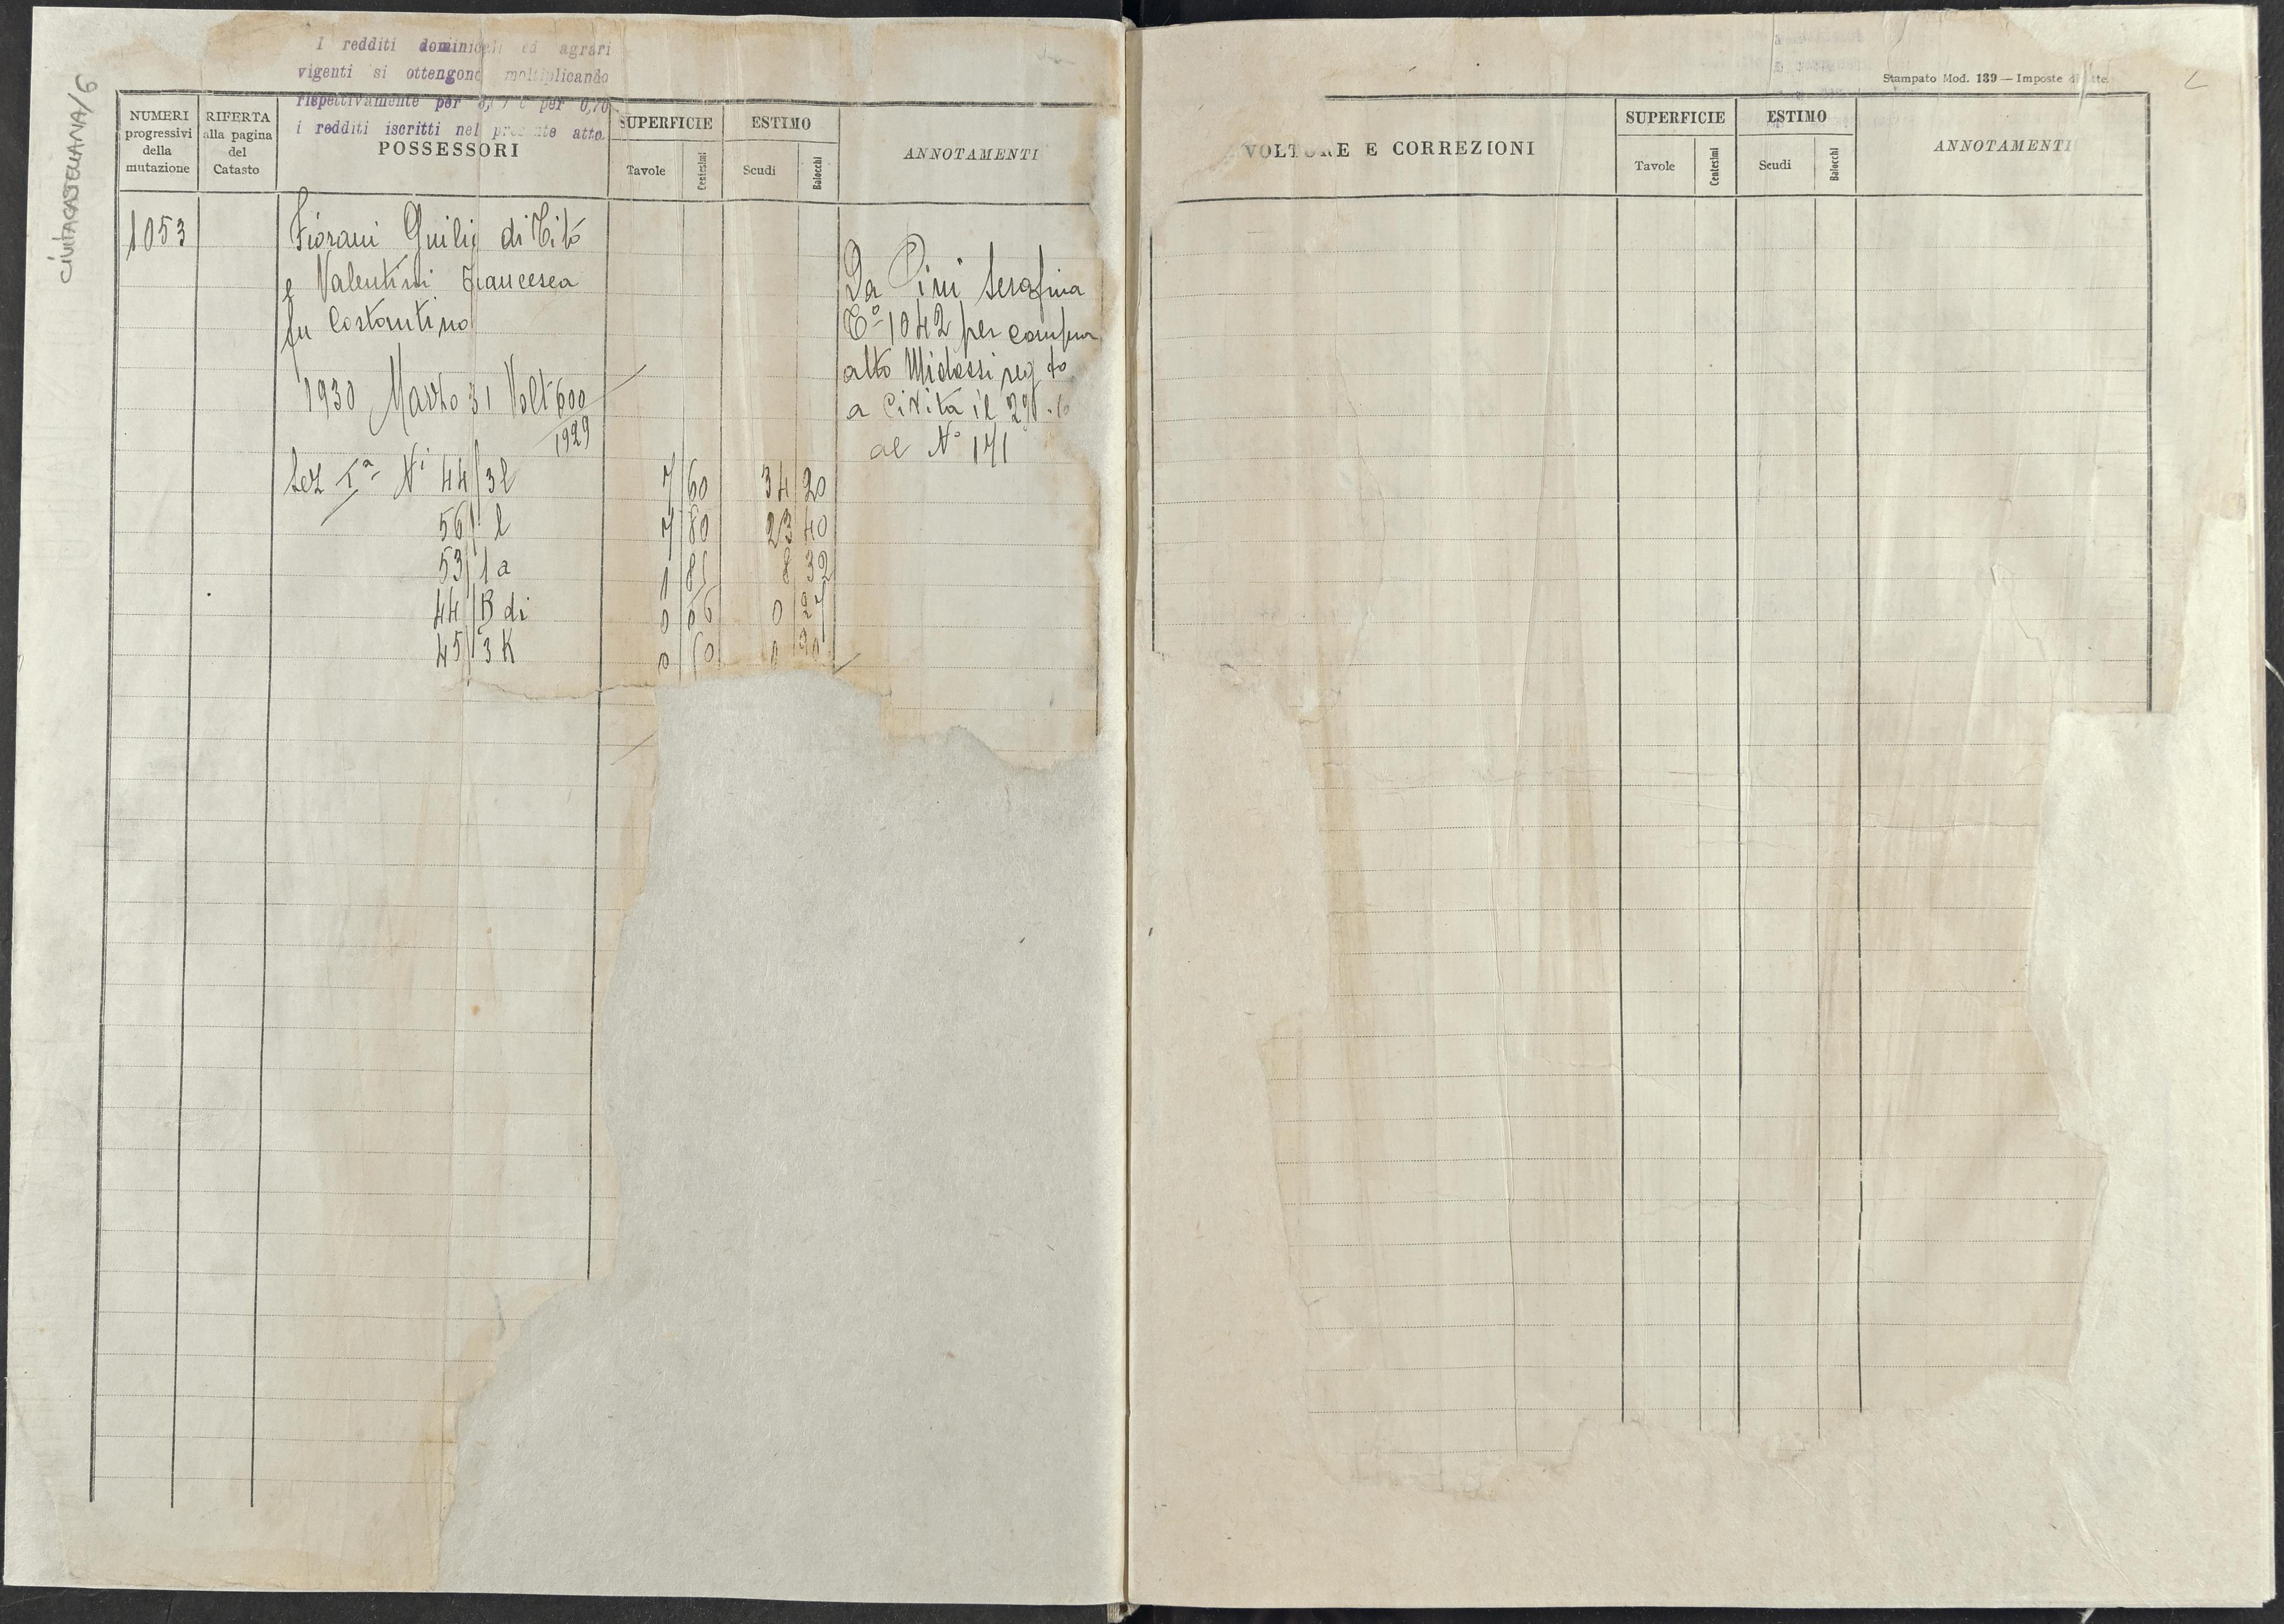 CIVITACASTELLANA/6
I redditi dominicali ed agrari
vigenti si ottengono moltiplicando
rispettivamente per e per 0,70
i redditi iscritti nel presente atto.
NUMERI
progressivi
della
mutazione
RIFERTA
alla pagina
del
Catasto
POSSESSORI
SUPERFICIE
Tavole
Centesimi
ESTIMO
Scudi
Baiocchi
ANNOTAMENTI
1053
Fiorani Giulio di Tito
e Valentini Francesca
fu Costantino
1930 Marzo 31 Volt 600
1929
Da Pini Serafina
1042 per compra
atto Midossi reg to
a Civita il
al N° 171
Sez Iª Ni 44/3l 7 60 34 20
56/ l 7 80 23 40
53/1a 1 85 8 32
44/B di 0 06 0 27
45/3K 0 60 0
Stampato Mod. 139 — Imposte
VOLTURE E CORREZIONI
SUPERFICIE
Tavole
Centesimi
ESTIMO
Scudi
Baiocchi
ANNOTAMENTI